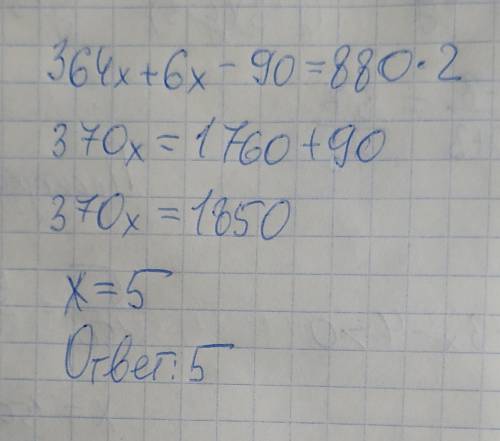 364x+6x-90=880·2
370x=1760+90
370x=1850
x=5
Ответ: 5